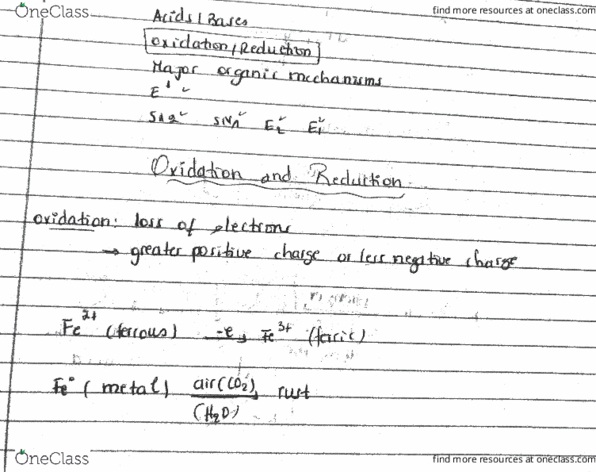 OneClass
find more resources at oneclass.com
Acids/Bases
Oxidation/Reduction
Major organic mechanisms
E
SN2 SN1 E2 E1
Oxidation and Reduction
oxidation: loss of electrons
→ greater positive charge or less negative charge
Fe²⁺ (ferrous) -e→ Fe³⁺ (ferric)
Fe° (metal) air(O2) (H2O) → rust
OneClass
find more resources at oneclass.com